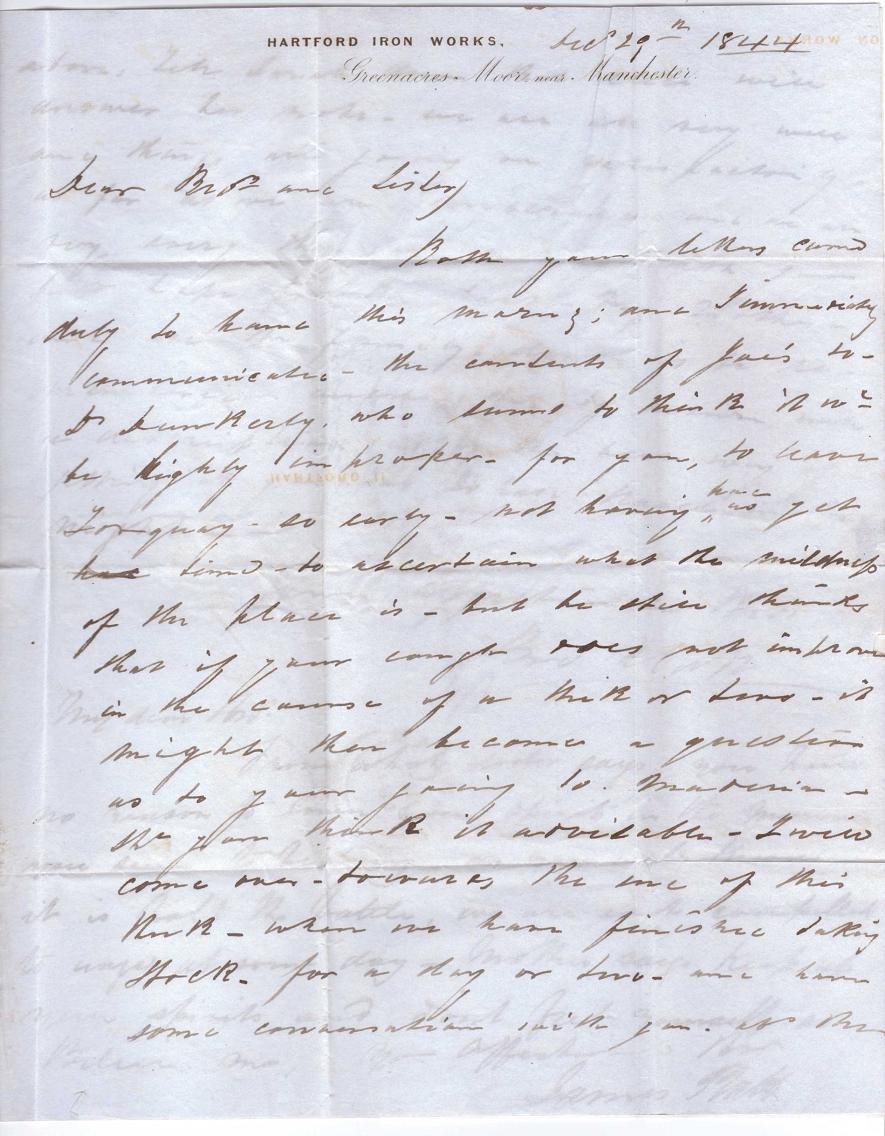 HARTFORD IRON WORKS, Decr 29th 1844
Greenacres-Moor, near Manchester.
Dear Bror and Sister,
Both your letters came
duly to hand this morng; and I immediately
communicated the contents of Joe's to
Dr Dunkerly, who seems to think it wd
be highly improper - for you, to leave
Torquay - so early - not having had as yet
time - to ascertain what the mildness
of the place is - but he still thinks
that if your cough does not improve
in the course of a week or two - it
might then become a question
as to your going to Madeira -
if you think it advisable - I will
come over - towards the end of this
week - when we have finished taking
stock - for a day or two - and have
some conversation with you. as the